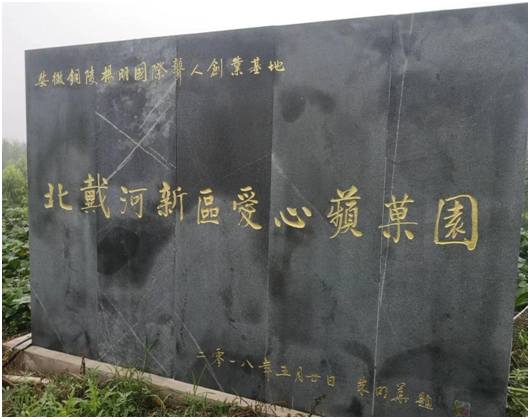 安徽銅陵楊明國際聾人創業基地
北戴河新區愛心蘋菓園
二零一八年五月廿日 朱明義題